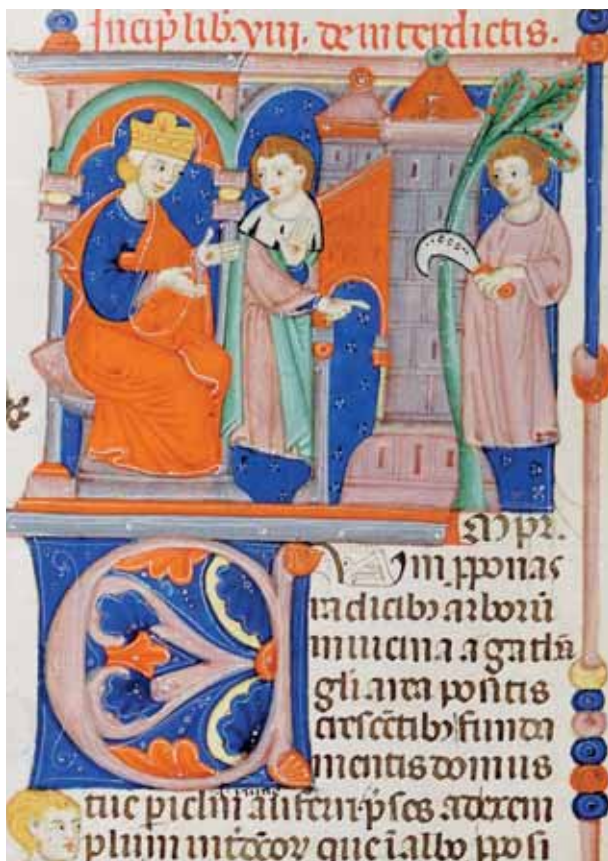 Incip lib. viii. de interdictis.
m pponas
radicib; arborū
in uicina agathā
gli area positis
crescētib; funda
mentis domus
tue piclm afferri pses ad exem
plum que ī albo pposi